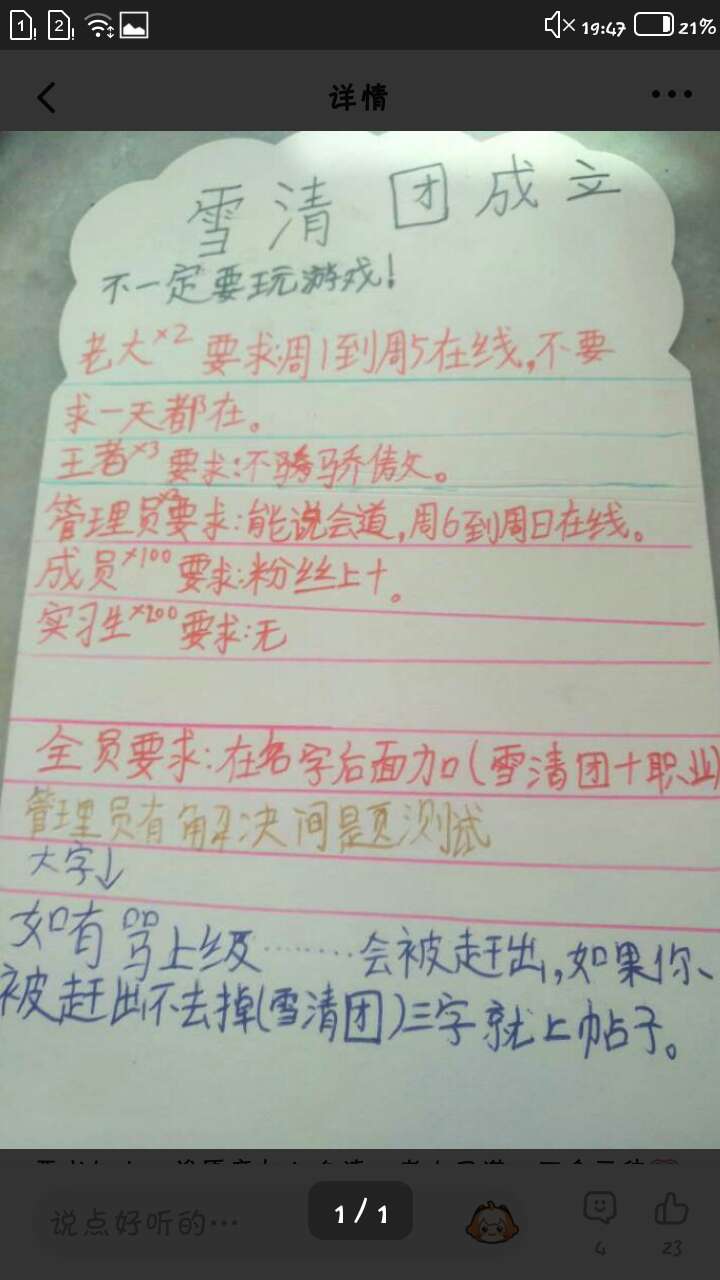 1! 2! 19:47 21%
详情
雪清团成立
不一定要玩游戏!
老大×2 要求:周1到周5在线,不要
求一天都在。
王者×3 要求:不骄傲。
管理员×3要求:能说会道,周6到周日在线。
成员×100 要求:粉丝上十。
实习生×200 要求:无
全员要求:在名字后面加(雪清团+职业)
管理员有解决问题测试
大字↓
如有骂上级………会被赶出,如果你、
被赶出不去掉(雪清团)三字就上帖子。
说点好听的…
1/1
4
23